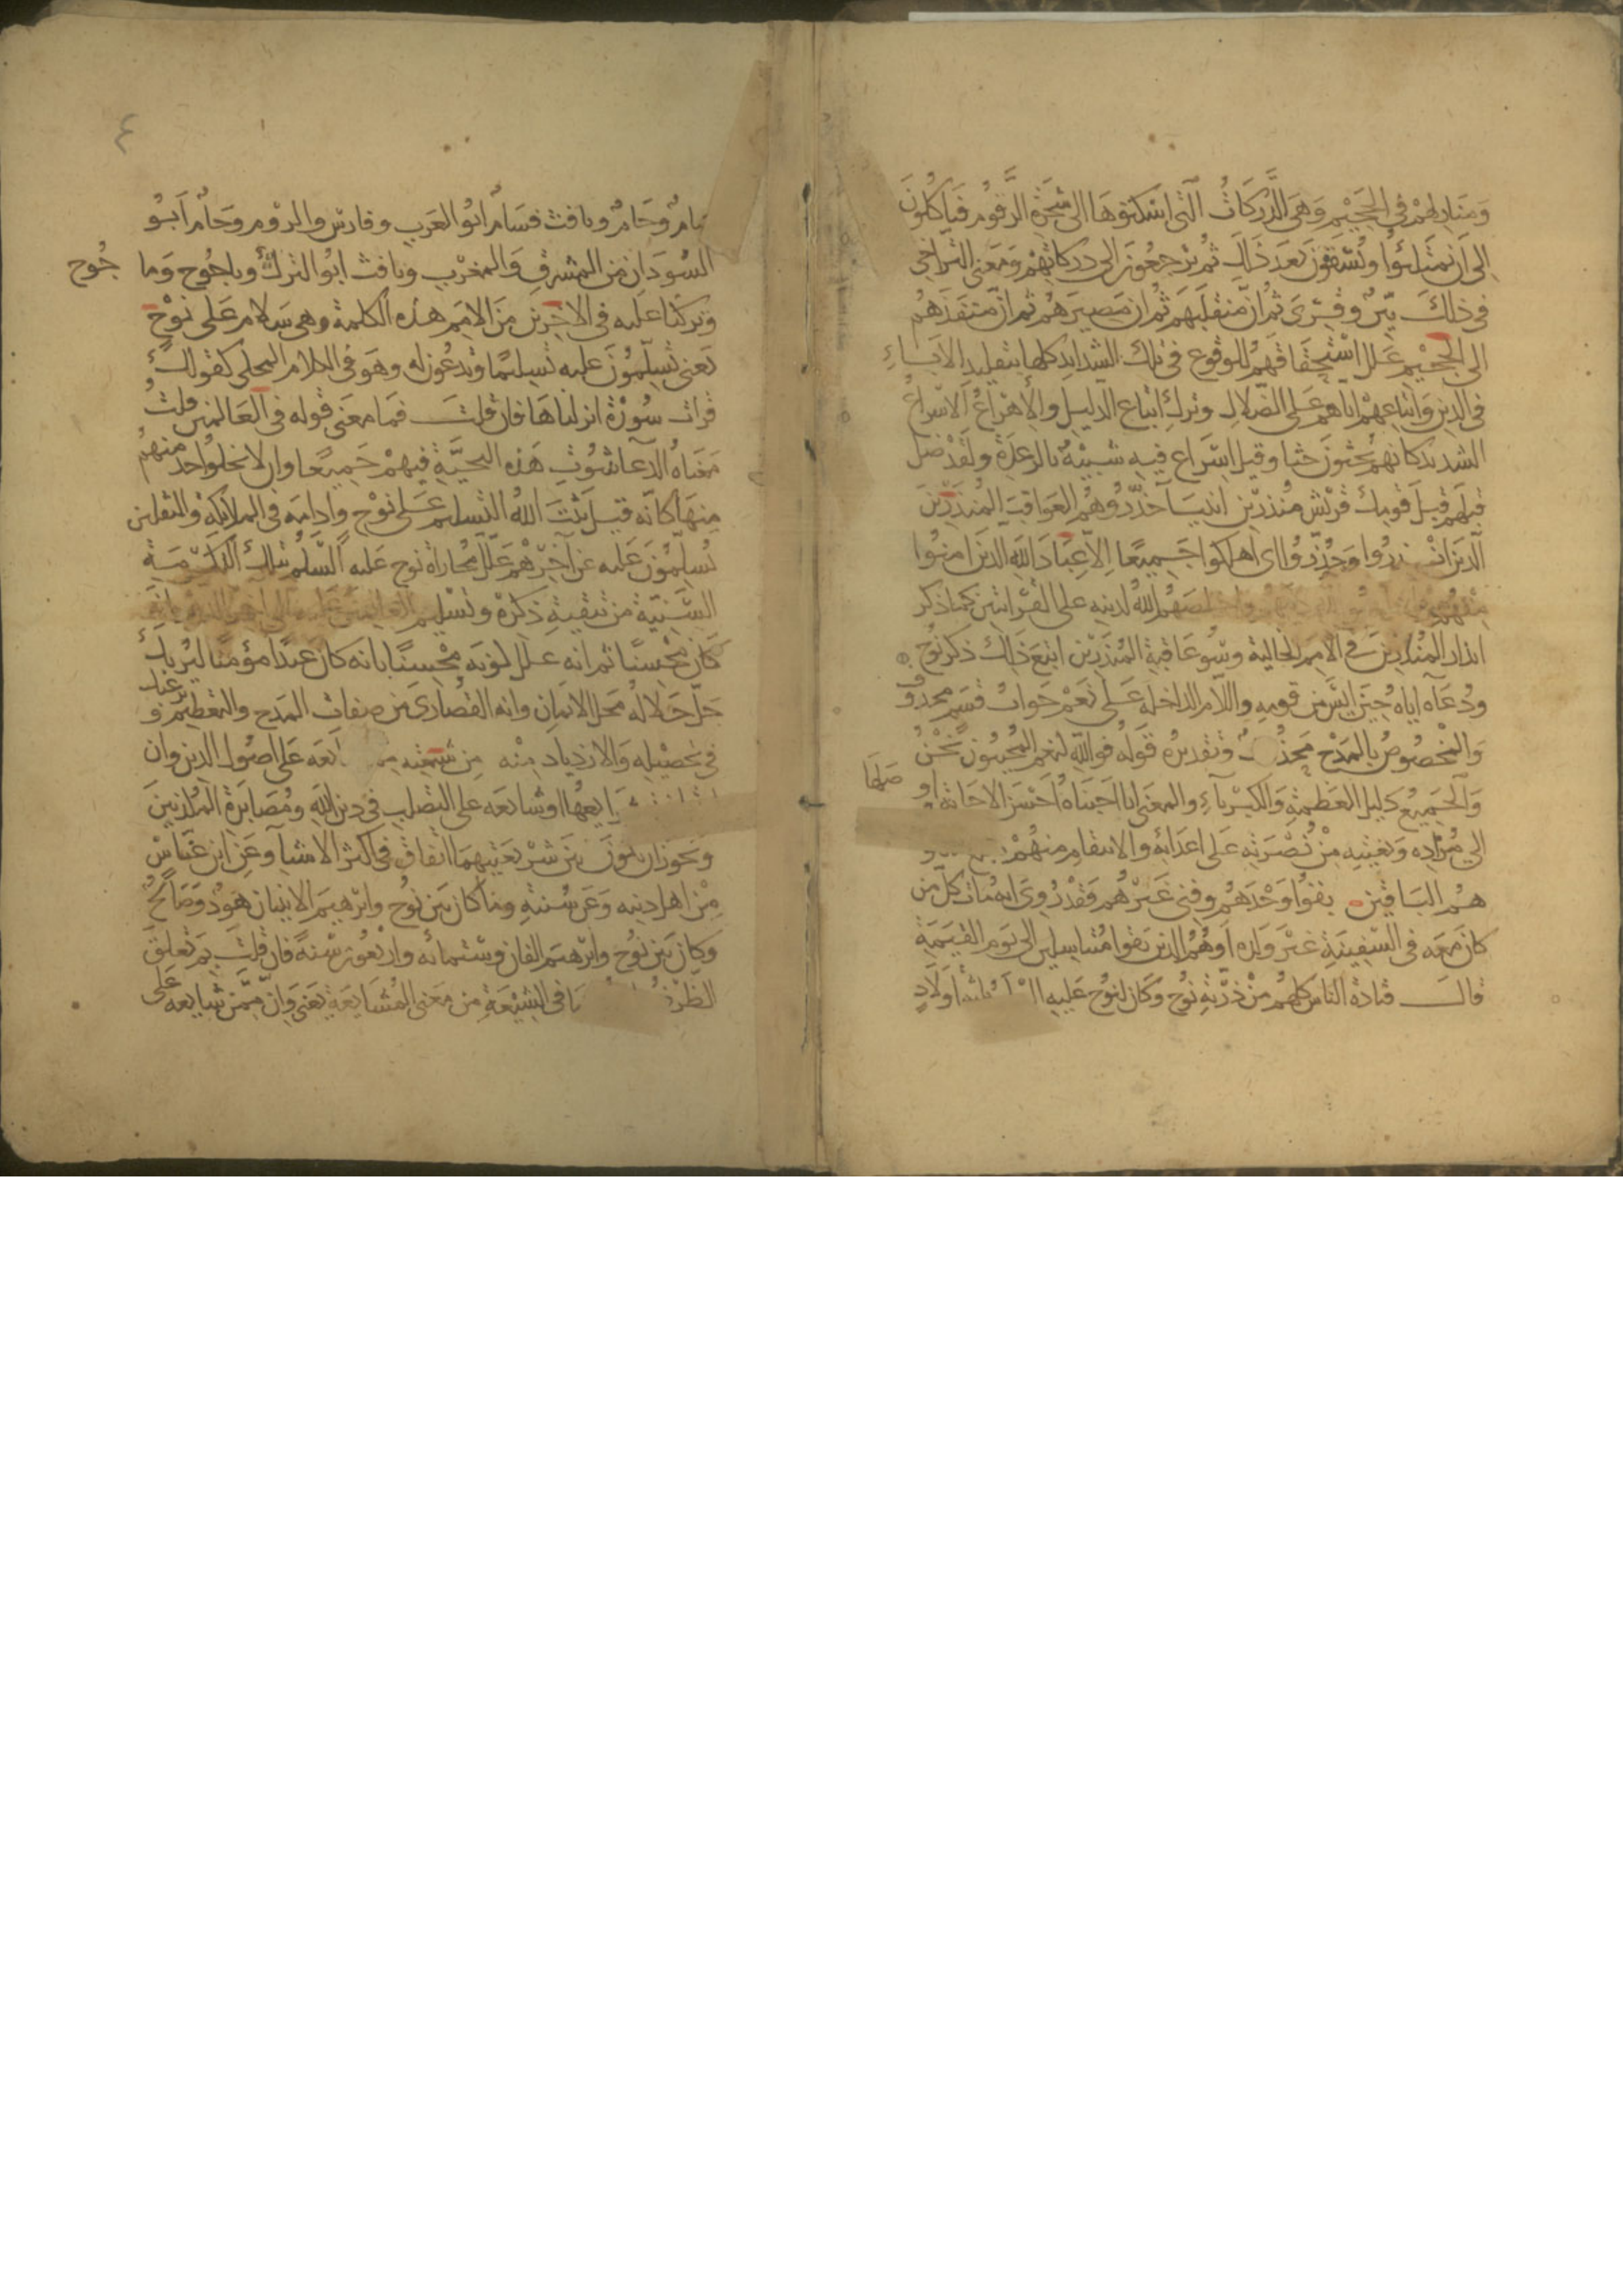 ومنازلهم في الجحيم وهي الدركات التي اسكنوها الى شجرة الزقوم فياكلون
الى ان يمتلئوا ويسقون بعد ذلك ثم يرجعون الى دركاتهم ومعنى التراخي
في ذلك بين وقرئ ثم ان منقلبهم ثم ان مصيرهم ثم ان منفذهم
الى الجحيم علل استحقاقهم للوقوع في تلك الشدايد كلها بتقليد الاباء
في الدين واتباعهم اياهم على الضلال وترك اتباع الدليل والاهراع الاسراع
الشديد كانهم يحثون حثا وقيل اسراع فيه شبيه بالرعدة ولقد ضل
قبلهم قبل قومك قريش منذرين انبيآ حذروهم العواقب المنذرين
الذين انذروا وحذروا اي اهلكوا جميعا الا عباد الله الذين امنوا
منهم الله لدينه على القراتين كما ذكر
انذار المنذرين في الامم الخالية وسو عاقبة المنذرين اتبع ذلك ذكر نوح
ودعآه اياه حين ايس من قومه واللام الداخلة على نعم جواب قسم محذوف
والمخصوص بالمدح محذوف وتقديره قوله فوالله لنعم المجيبون نحن
والجميع دليل العظمة والكبريآء والمعنى انا اجبناه احسن الاجابة او صلها
الى مراده وبغيته من نصرته على اعدائه والانتقام منهم
هم الباقين بقوا وحدهم وفني غيرهم فقد روي انه مات كل من
كان معه في السفينة غير ولده او هم الذين بقوا متناسلين الى يوم القيمة
قال قتادة الناس كلهم من ذرية نوح وكان لنوح عليه ثلثة اولاد
سام وحام ويافث فسام ابو العرب وفارس والروم وحام ابو
السودان من المشرق والمغرب ويافث ابو الترك وياجوج وما جوج
وتركنا عليه في الاخرين من الامم هذه الكلمة وهي سلام على نوح
يعني يسلمون عليه تسليما ويدعون له وهو في الكلام المحكي كقولك
قرات سورة انزلناها فان قلت فما معنى قوله في العالمين قلت
معناه الدعآ بثبوت هذه التحية فيهم جميعا وان لا يخلوا احد منهم
منها كانه قيل يثبت الله التسليم على نوح وادامه في الملائكة والثقلين
يسلمون عليه عن اخرهم علل مجاراة نوح عليه السلم بتلك التكرمة
السنية من تبقية ذكره وتسليم العالمين عليه الى اخر الدهر بانه
كان محسنا ثم انه علل كونه محسنا بانه كان عبدا مؤمنا ليريك
جل جلاله محل الايمان وانه القصارى من صفات المدح والتعظيم ويرغبك
في تحصيله والازدياد منه من شيعته من شايعه على اصول الدين وان
شرايعهما او شايعه على التصلب في دين الله ومصابرة المكذبين
ويجوز ان يكون بين شريعتيهما اتفاق في اكثر الاشيآ وعن ابن عباس
من اهل دينه وعلى سنته وما كان بين نوح وابرهيم الا نبيان هود وصالح
وكان بين نوح وابرهيم الفان وستمائه واربعون سنة فان قلت بم تعلق
الظرف بما في الشيعة من معنى المشايعة يعني وان ممن شايعه على